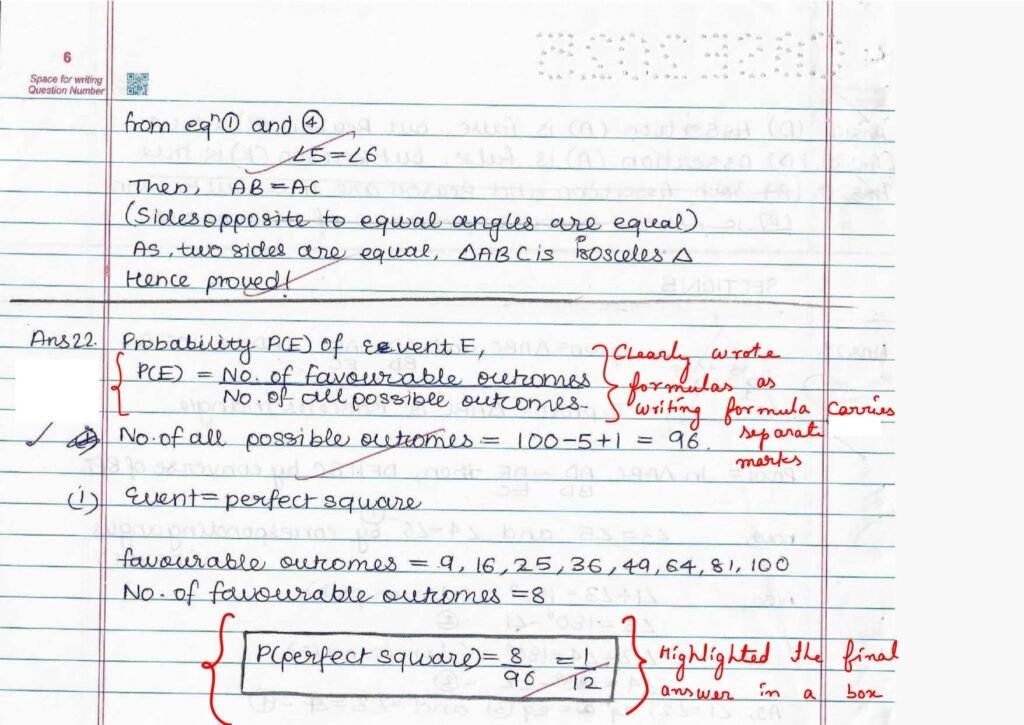 6
Space for writing
Question Number
from eqⁿ① and ④
∠5=∠6
Then, AB=AC
(Sides opposite to equal angles are equal)
As, two sides are equal, △ABC is isosceles △
Hence proved!
Ans22. Probability P(E) of event E,
P(E) = No. of favourable outcomes
No. of all possible outcomes.
Clearly wrote
formulas as
writing formula carries
separate
marks
No. of all possible outcomes = 100-5+1 = 96.
(i) Event = perfect square
favourable outcomes = 9, 16, 25, 36, 49, 64, 81, 100
No. of favourable outcomes = 8
P(perfect square) = 8/96 = 1/12
Highlighted the final
answer in a box